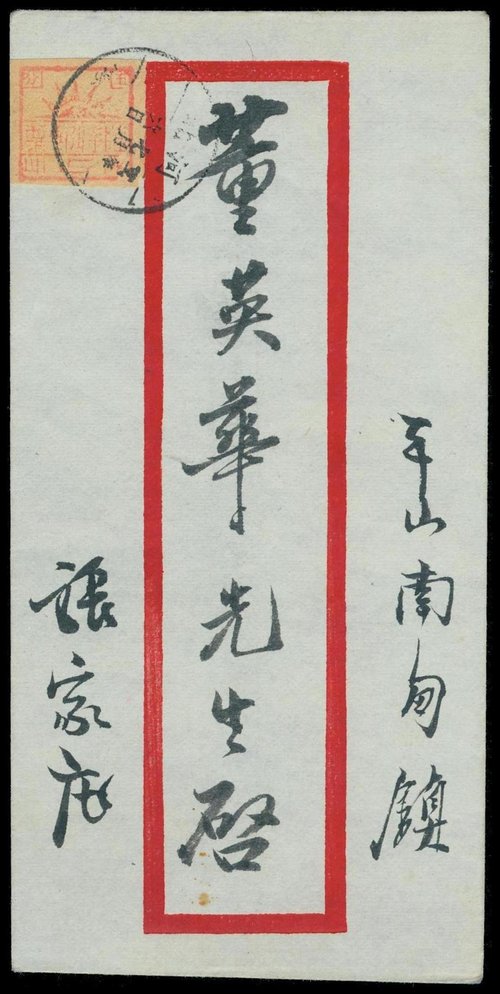 平山南甸鎮
董英華先生啓
張家庄